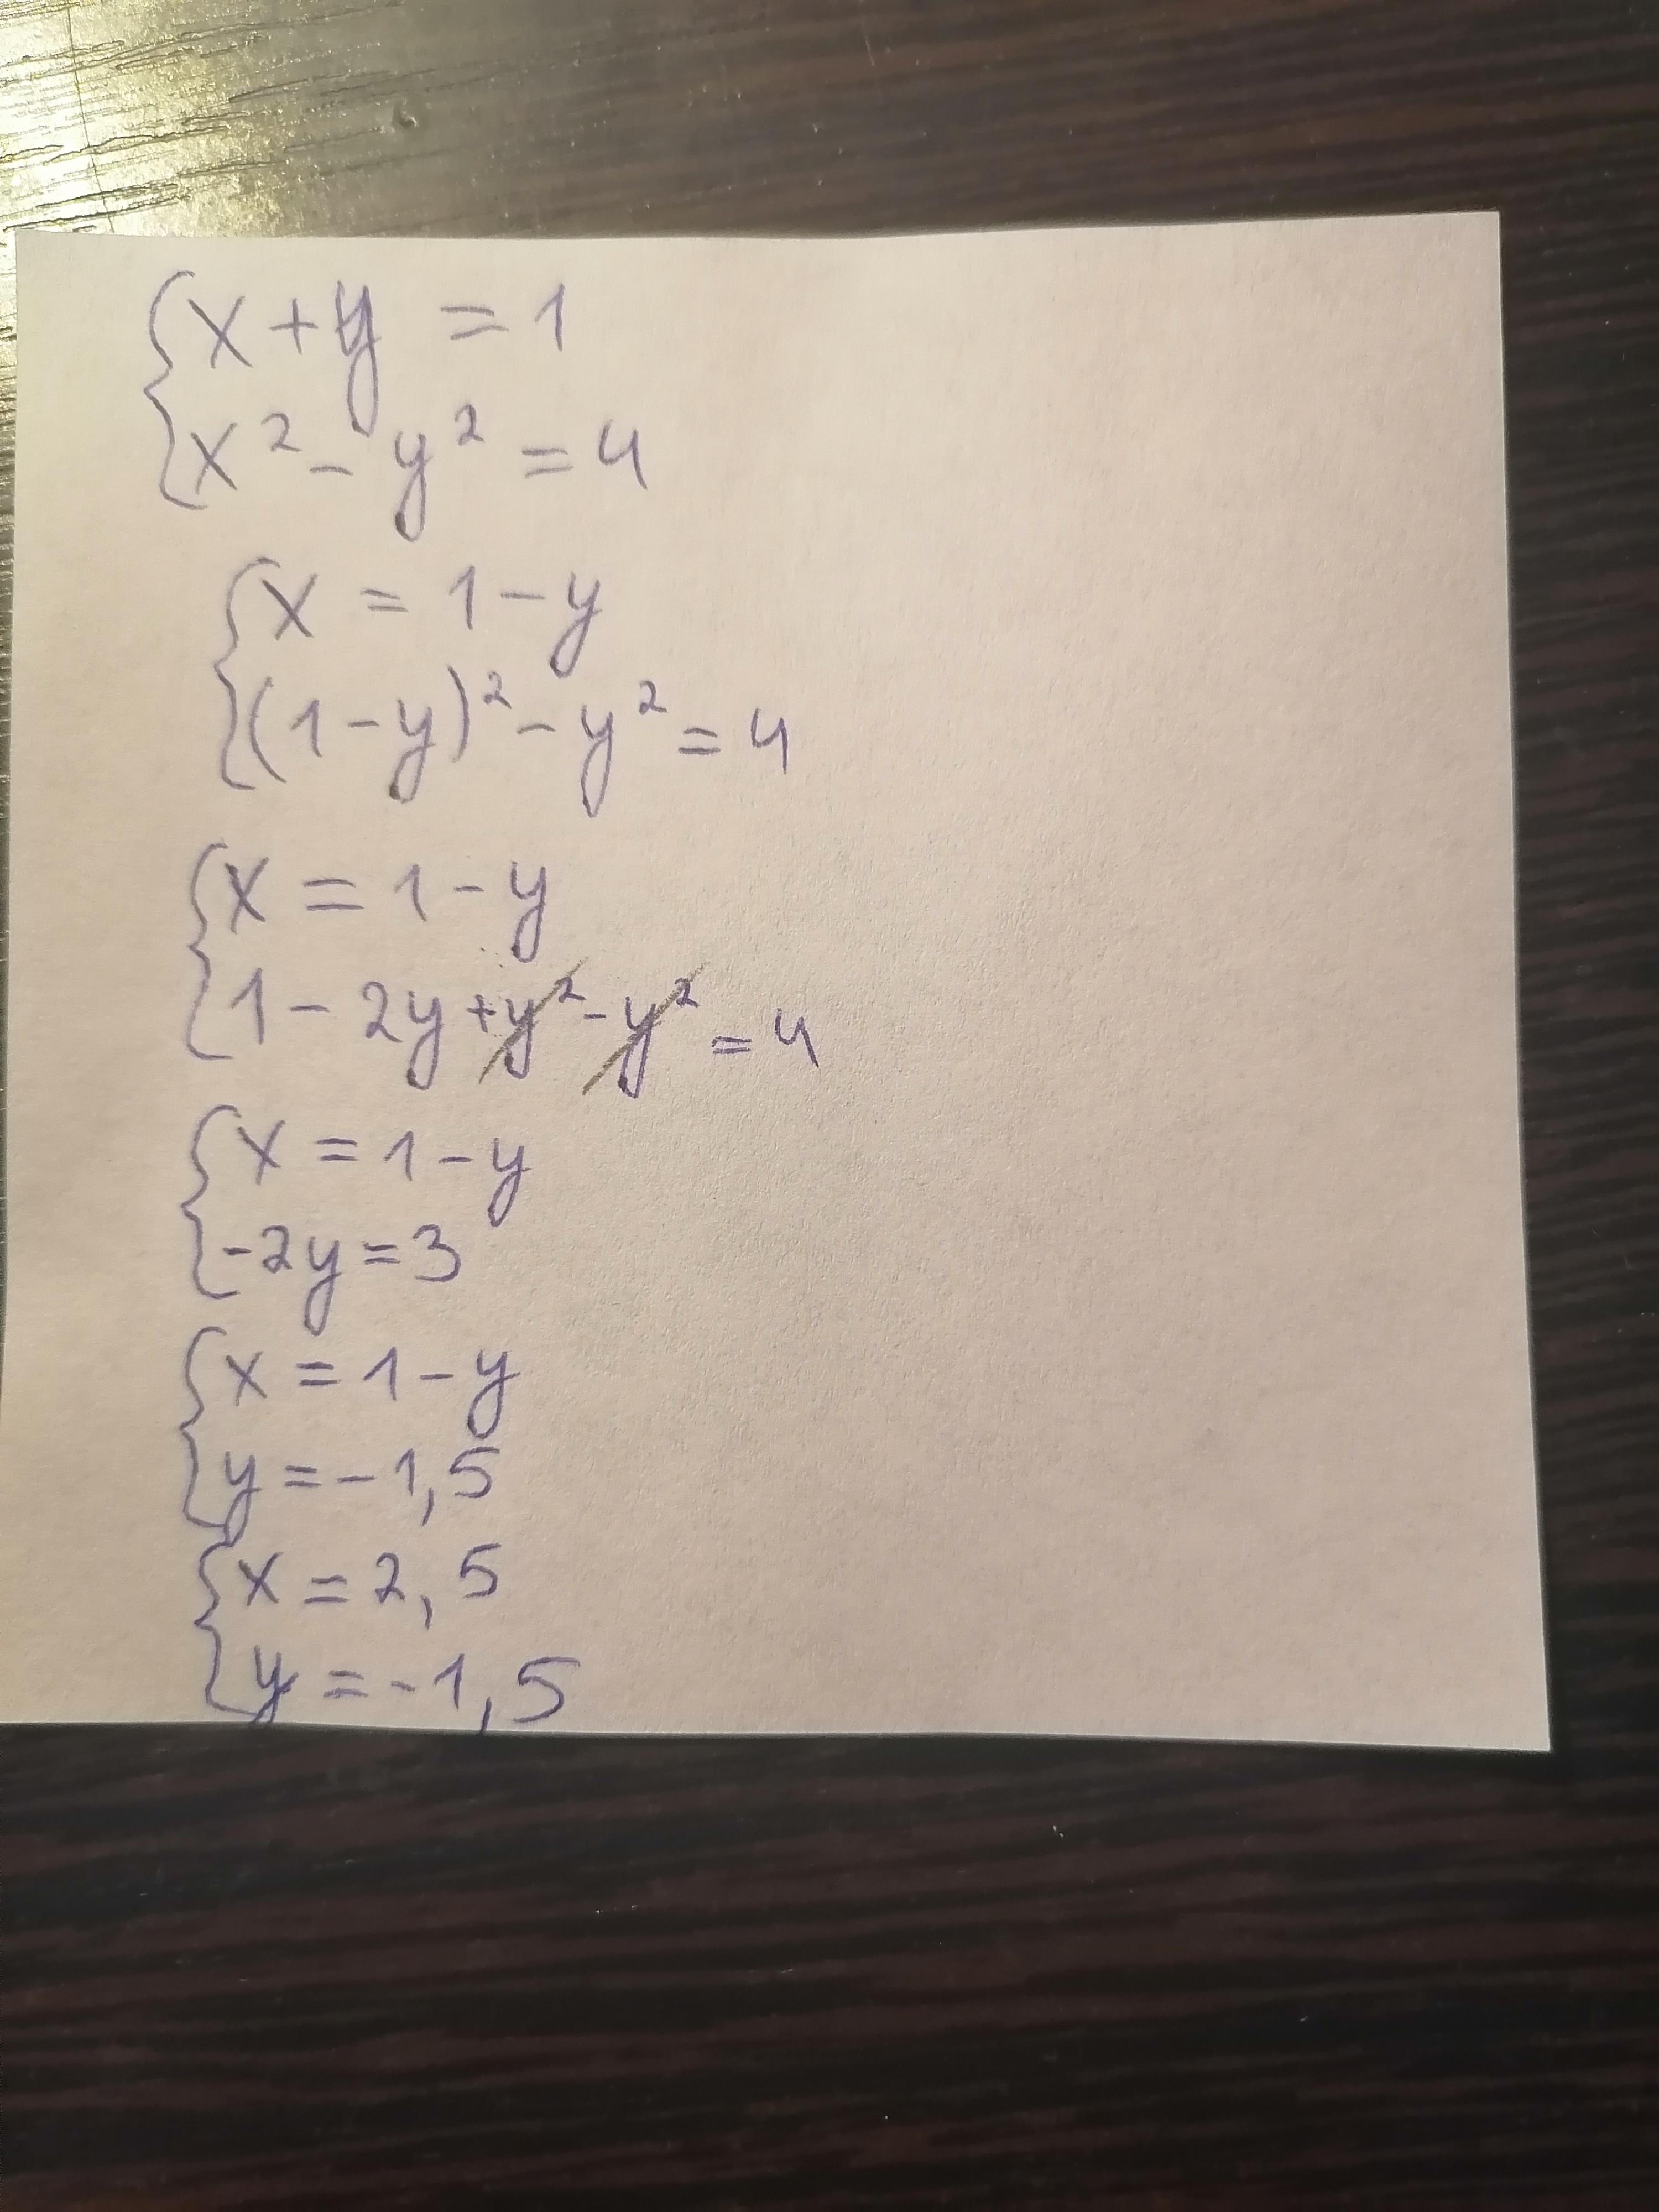 x + y = 1
x² - y² = 4
x = 1 - y
(1 - y)² - y² = 4
x = 1 - y
1 - 2y + y² - y² = 4
x = 1 - y
-2y = 3
x = 1 - y
y = -1,5
x = 2,5
y = -1,5